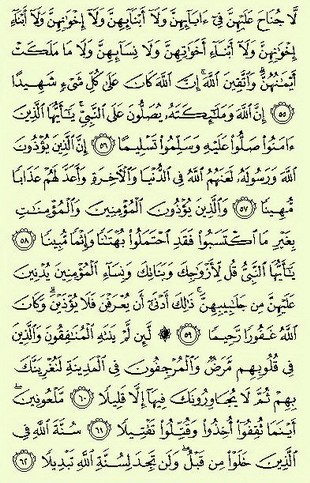 لَّا جُنَاحَ عَلَيْهِنَّ فِىٓ ءَابَآئِهِنَّ وَلَآ أَبْنَآئِهِنَّ وَلَآ إِخْوَٰنِهِنَّ وَلَآ أَبْنَآءِ
إِخْوَٰنِهِنَّ وَلَآ أَبْنَآءِ أَخَوَٰتِهِنَّ وَلَا نِسَآئِهِنَّ وَلَا مَا مَلَكَتْ
أَيْمَٰنُهُنَّ ۗ وَٱتَّقِينَ ٱللَّهَ ۚ إِنَّ ٱللَّهَ كَانَ عَلَىٰ كُلِّ شَىْءٍ شَهِيدًا
٥٥ إِنَّ ٱللَّهَ وَمَلَٰٓئِكَتَهُۥ يُصَلُّونَ عَلَى ٱلنَّبِىِّ ۚ يَٰٓأَيُّهَا ٱلَّذِينَ
ءَامَنُوا۟ صَلُّوا۟ عَلَيْهِ وَسَلِّمُوا۟ تَسْلِيمًا ٥٦ إِنَّ ٱلَّذِينَ يُؤْذُونَ
ٱللَّهَ وَرَسُولَهُۥ لَعَنَهُمُ ٱللَّهُ فِى ٱلدُّنْيَا وَٱلْءَاخِرَةِ وَأَعَدَّ لَهُمْ عَذَابًا
مُّهِينًا ٥٧ وَٱلَّذِينَ يُؤْذُونَ ٱلْمُؤْمِنِينَ وَٱلْمُؤْمِنَٰتِ
بِغَيْرِ مَا ٱكْتَسَبُوا۟ فَقَدِ ٱحْتَمَلُوا۟ بُهْتَٰنًا وَإِثْمًا مُّبِينًا ٥٨
يَٰٓأَيُّهَا ٱلنَّبِىُّ قُل لِّأَزْوَٰجِكَ وَبَنَاتِكَ وَنِسَآءِ ٱلْمُؤْمِنِينَ يُدْنِينَ
عَلَيْهِنَّ مِن جَلَٰبِيبِهِنَّ ۚ ذَٰلِكَ أَدْنَىٰٓ أَن يُعْرَفْنَ فَلَا يُؤْذَيْنَ ۗ وَكَانَ
ٱللَّهُ غَفُورًا رَّحِيمًا ٥٩ ۞ لَّئِن لَّمْ يَنتَهِ ٱلْمُنَٰفِقُونَ وَٱلَّذِينَ
فِى قُلُوبِهِم مَّرَضٌ وَٱلْمُرْجِفُونَ فِى ٱلْمَدِينَةِ لَنُغْرِيَنَّكَ
بِهِمْ ثُمَّ لَا يُجَاوِرُونَكَ فِيهَآ إِلَّا قَلِيلًا ٦٠ مَّلْعُونِينَ ۖ
أَيْنَمَا ثُقِفُوٓا۟ أُخِذُوا۟ وَقُتِّلُوا۟ تَقْتِيلًا ٦١ سُنَّةَ ٱللَّهِ فِى
ٱلَّذِينَ خَلَوْا۟ مِن قَبْلُ ۖ وَلَن تَجِدَ لِسُنَّةِ ٱللَّهِ تَبْدِيلًا ٦٢